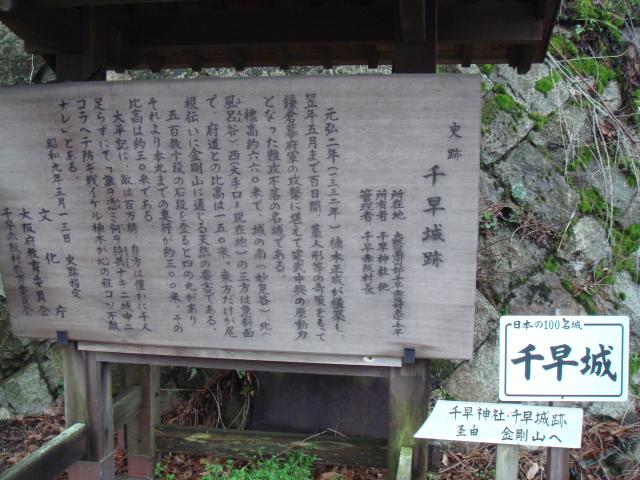 史跡 千早城跡
所在地 大阪府南河内郡千早赤阪村千早
所有者 千早神社 他
管理者 千早赤阪村長
元弘二年(一三三二年)楠木正成が構築し、
翌年五月まで百日間、藁人形等の奇策をもって
鎌倉幕府軍の攻撃に堪えて建武中興の原動力
となった難攻不落の名城である。
標高約六六〇米で、城の南(妙見谷)北(
風呂谷)西(大手口=現在地)の三方は急斜面
で、府道との比高は一五〇米。東方だけが尾
根伝いに金剛山に通じる天然の要害である。
五百数十段の石段を登ると四の丸があり
それより本丸までの奥行が約三〇〇米、その
比高は約三〇米である。
太平記に、敵は百万騎、身方は僅かに千人
足らずにて「誰ヲ憑ミ何ヲ待共ナキニ城中ニ
コラヘテ防キ戦イケル楠木が心の程コソ不敵
ナレ」とある。
昭和九年三月一三日 史跡指定
文化庁
大阪府教育委員会
千早赤阪村教育委員会
日本の100名城
千早城
千早神社・千早城跡
至由 金剛山へ